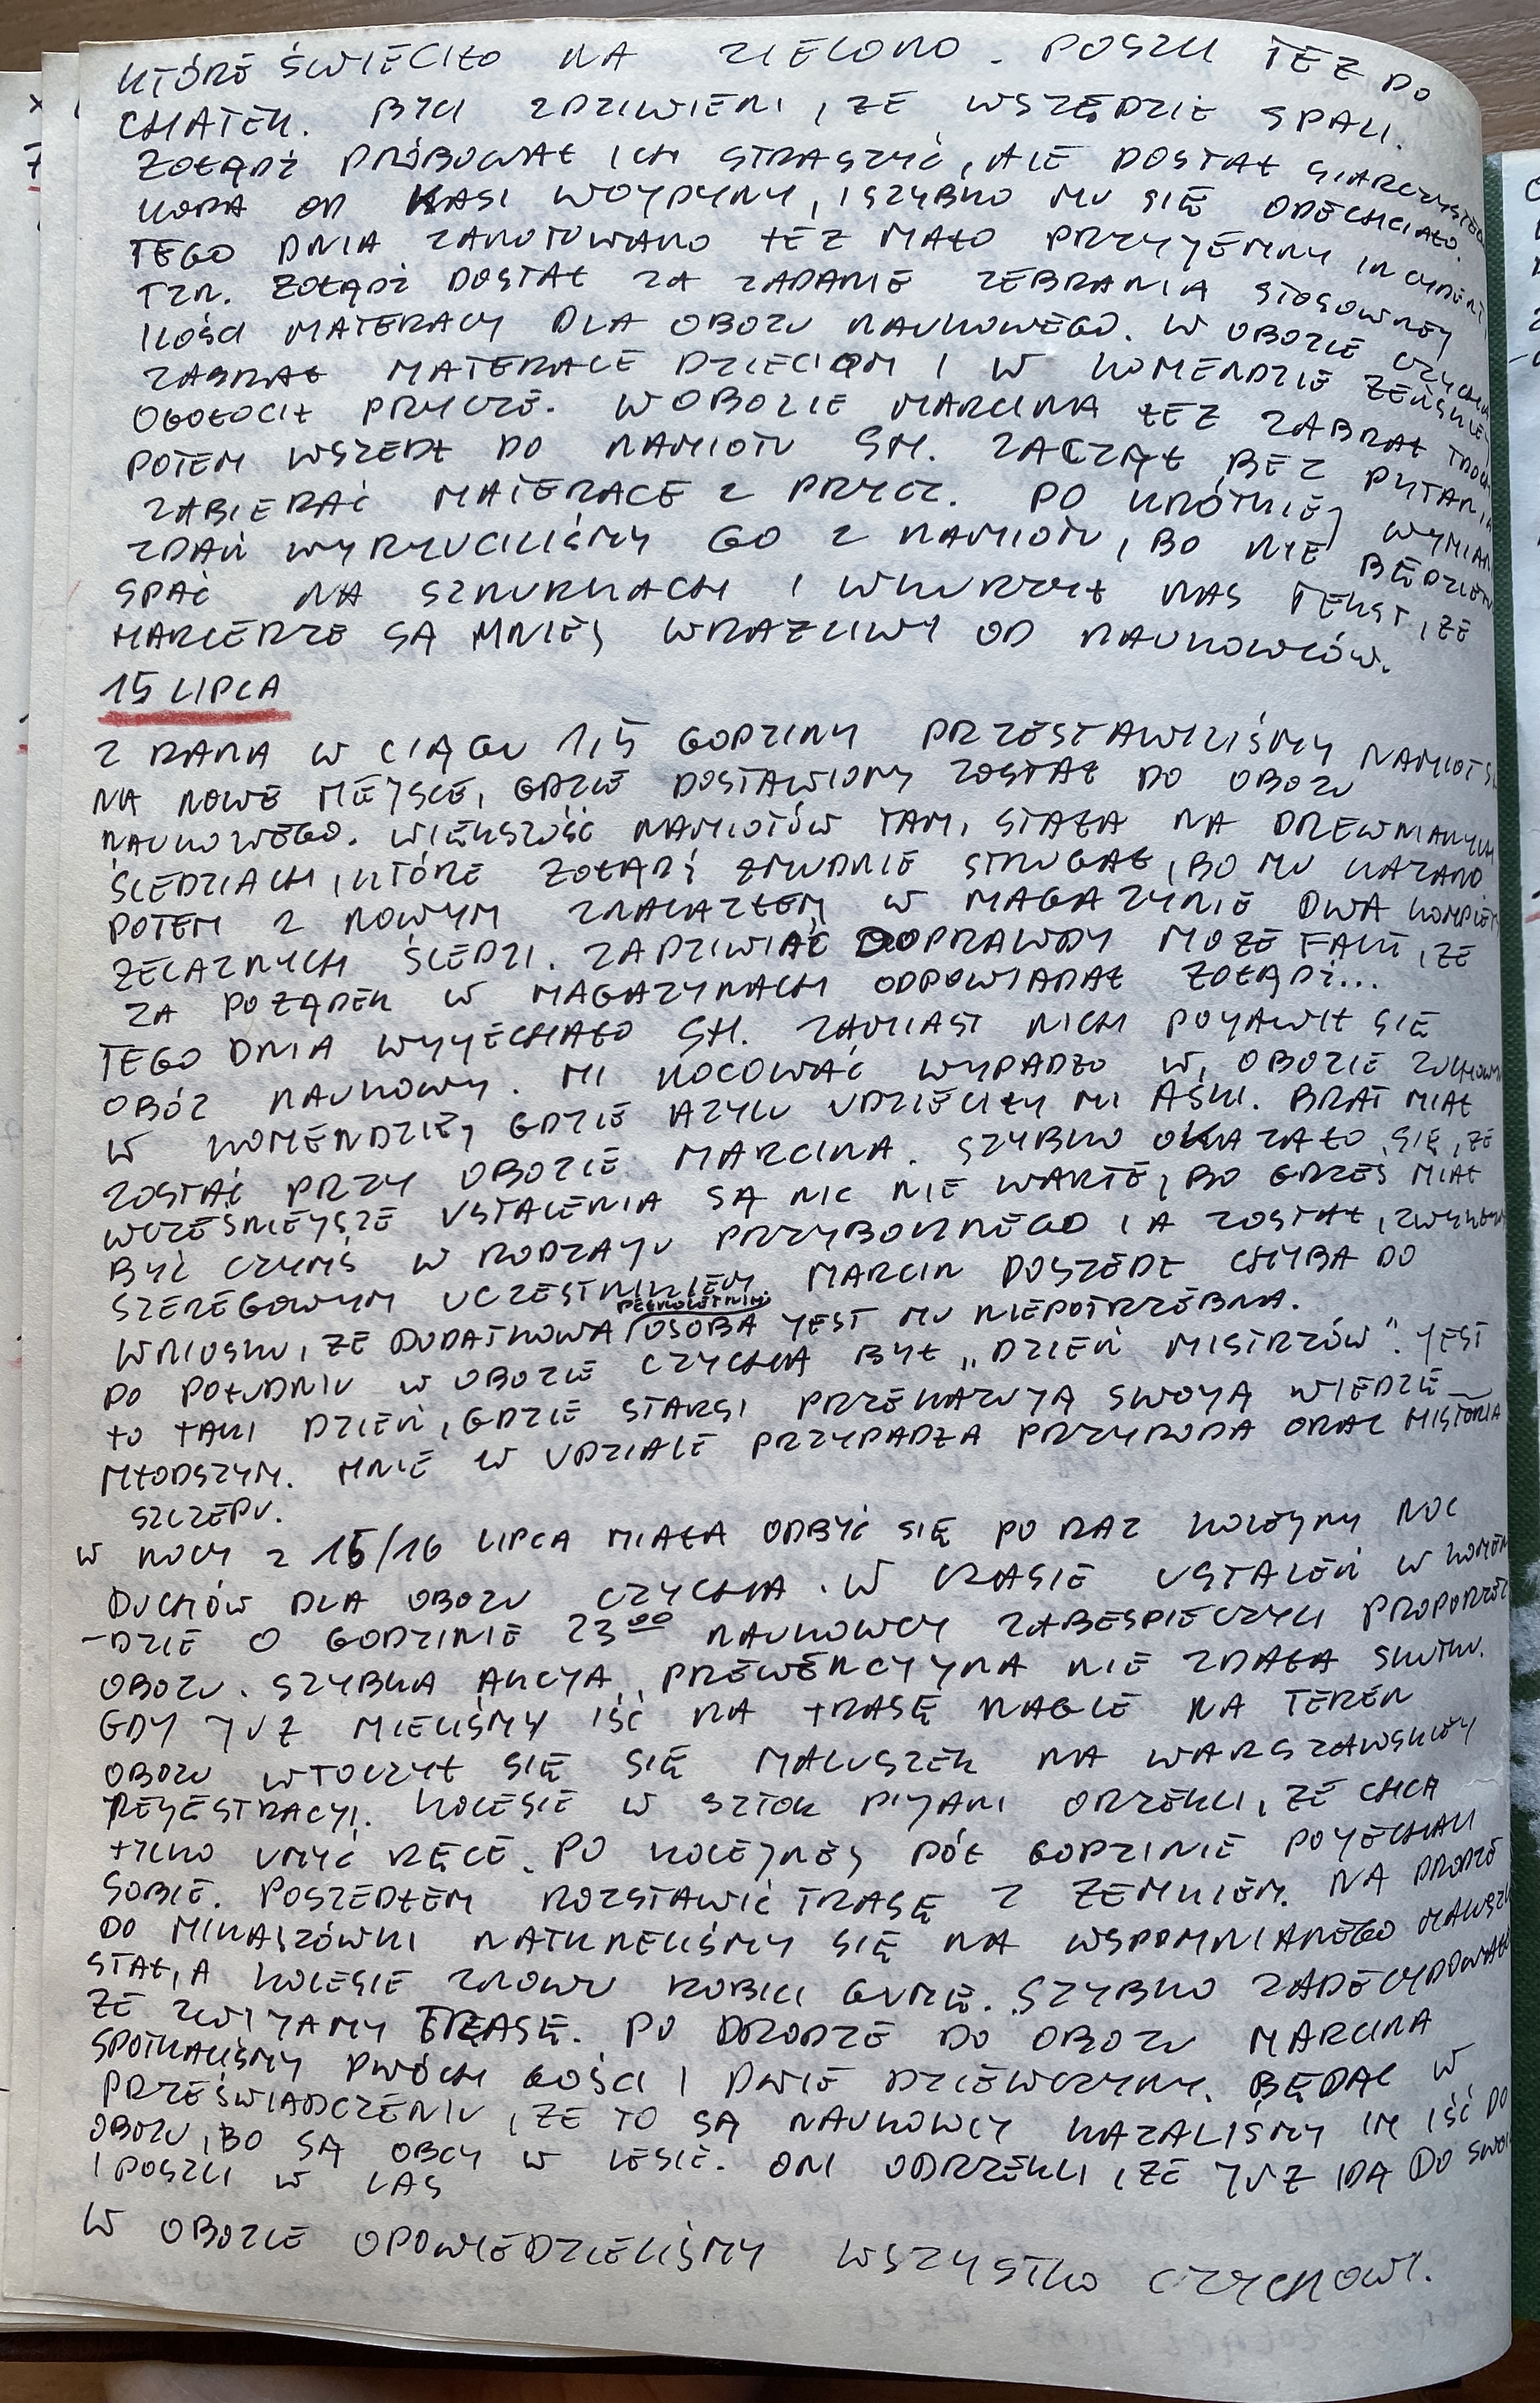 KTÓRE ŚWIECIŁO NA ZIELONO. POSZLI TEŻ DO
CHATEK. BYLI ZDZIWIENI, ŻE WSZĘDZIE SPALI.
ŻOŁĄDŹ PRÓBOWAŁ ICH STRASZYĆ, ALE DOSTAŁ SIARCZYSTEGO
KOPA OD KASI WOJDYNY, I SZYBKO MU SIĘ ODECHCIAŁO.
TEGO DNIA ZANOTOWANO TEŻ MAŁO PRZYJEMNY INCYDENT,
TZN. ŻOŁĄDŹ DOSTAŁ ZA ZADANIE ZEBRANIA STOSOWNEJ
ILOŚCI MATERACY DLA OBOZU NAUKOWEGO. W OBOZIE CZYCHA
ZABRAŁ MATERACE DZIECIOM I W KOMENDZIE ŻEŃSKIEJ
OGOŁOCIŁ PRYCZE. W OBOZIE MARCINA TEŻ ZABRAŁ TROCHĘ
POTEM WSZEDŁ DO NAMIOTU SH. ZACZĄŁ BEZ PYTANIA
ZABIERAĆ MATERACE Z PRYCZ. PO KRÓTKIEJ WYMIANIE
ZDAŃ WYRZUCILIŚMY GO Z NAMIOTU, BO NIE BĘDZIEMY
SPAĆ NA SZNURKACH I WKURZYŁ NAS TEKST, ŻE
HARCERZE SĄ MNIEJ WRAŻLIWI OD NAUKOWCÓW.
15 LIPCA
Z RANA W CIĄGU 1,5 GODZINY PRZESTAWILIŚMY NAMIOT SH
NA NOWE MIEJSCE, GDZIE DOSTAWIONY ZOSTAŁ DO OBOZU
NAUKOWEGO. WIĘKSZOŚĆ NAMIOTÓW TAM, STAŁA NA DREWNIANYCH
ŚLEDZIACH, KTÓRE ŻOŁĄDŹ ŻMUDNIE STRUGAŁ, BO MU KAZANO.
POTEM Z NOWYM ZNALAZŁEM W MAGAZYNIE DWA KOMPLETY
ŻELAZNYCH ŚLEDZI. ZADZIWIAĆ DOPRAWDY MOŻE FAKT, ŻE
ZA POŻĄDEK W MAGAZYNACH ODPOWIADAŁ ŻOŁĄDŹ...
TEGO DNIA WYJECHAŁO SH. ZAMIAST NICH POJAWIŁ SIĘ
OBÓZ NAUKOWY. MI NOCOWAĆ WYPADŁO W OBOZIE ZUCHOWYM
W KOMENDZIE, GDZIE AZYLU UDZIELIŁY MI AŚKI. BRAT MIAŁ
ZOSTAĆ PRZY OBOZIE MARCINA. SZYBKO OKAZAŁO SIĘ, ŻE
WCZEŚNIEJSZE USTALENIA SĄ NIC NIE WARTE, BO GRZEŚ MIAŁ
BYĆ CZYMŚ W RODZAJU PRZYBOCZNEGO I A ZOSTAŁ, ZWYKŁYM
SZEREGOWYM UCZESTNIKIEM. MARCIN DOSZEDŁ CHYBA DO
WNIOSKU, ŻE DODATKOWA PEŁNOLETNIA OSOBA JEST MU NIEPOTRZEBNA.
PO POŁUDNIU W OBOZIE CZYCHA BYŁ „DZIEŃ MISTRZÓW". JEST
TO TAKI DZIEŃ, GDZIE STARSI PRZEKAZUJĄ SWOJĄ WIEDZĘ
MŁODSZYM. MNIE W UDZIALE PRZYPADŁA PRZYRODA ORAZ HISTORIA
SZCZEPU.
W NOCY Z 15/16 LIPCA MIAŁA ODBYĆ SIĘ PO RAZ KOLEJNY NOC
DUCHÓW DLA OBOZU CZYCHA. W CZASIE USTALEŃ W KOMEN
-DZIE O GODZINIE 23⁰⁰ NAUKOWCY ZABESPIECZYLI PROPORZEC
OBOZU. SZYBKA AKCJA PREWENCYJNA NIE ZDAŁA SKUTKU.
GDY JUŻ MIELIŚMY IŚĆ NA TRASĘ NAGLE NA TEREN
OBOZU WTOCZYŁ SIĘ SIĘ MALUSZEK NA WARSZAWSKIEJ
REJESTRACJI. KOLESIE W SZTOK PIJANI ORZEKLI, ŻE CHCA
TYLKO UMYĆ RĘCE. PO KOLEJNEJ PÓŁ GODZINIE POJECHALI
SOBIE. POSZEDŁEM ROZSTAWIĆ TRASĘ Z ZEMKIEM. NA DRODZE
DO MIKASZÓWKI NATKNELIŚMY SIĘ NA WSPOMNIANEGO MALUSZKA
STAŁ, A KOLESIE ZNOWU ROBILI GUMĘ. SZYBKO ZADECYDOWAŁEM
ŻE ZWIJAMY TRASĘ. PO DRODZE DO OBOZU MARCINA
SPOTKALIŚMY DWÓCH GOŚCI I DWIE DZIEWCZYNY. BĘDĄC W
PRZEŚWIADCZENIU, ŻE TO SĄ NAUKOWCY KAZALIŚMY IM IŚĆ DO
OBOZU, BO SĄ OBCY W LESIE. ONI ODRZEKLI, ŻE JUŻ IDĄ DO SWOICH
I POSZLI W LAS
W OBOZIE OPOWIEDZIELIŚMY WSZYSTKO CZYCHOWI.